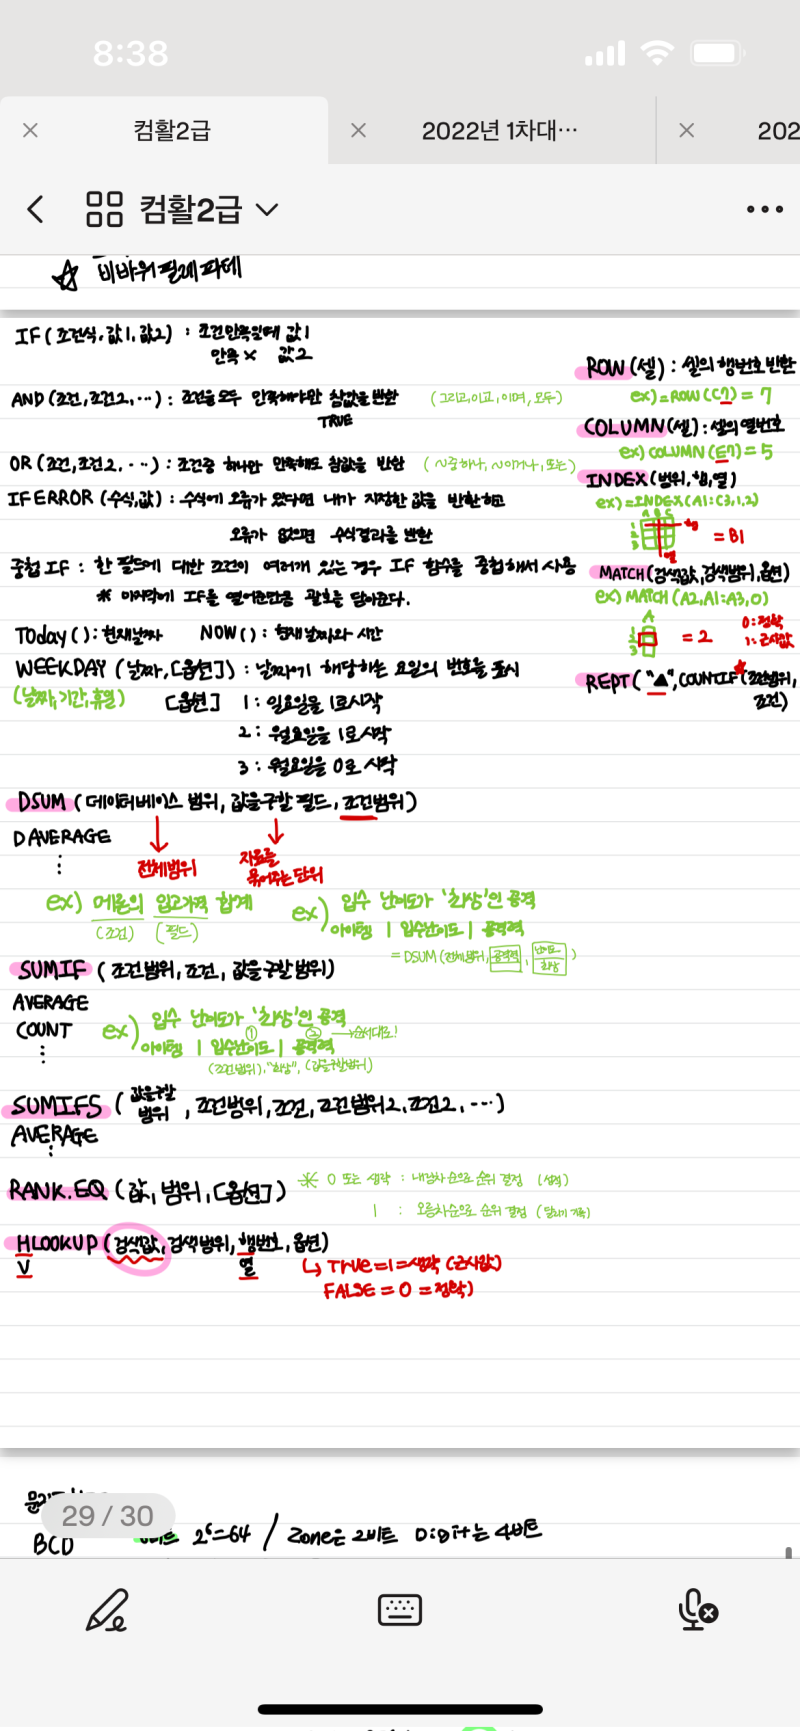 8:38
컴활2급
2022년 1차대…
202
컴활2급
☆ 비바위필레파테
IF(조건식, 값1, 값2) : 조건만족일때 값1
만족 X 값2
AND (조건, 조건2, …) : 조건을 모두 만족해야만 참값을 반환 (그리고, 이고, 이며, 모두)
TRUE
OR (조건, 조건2, …) : 조건중 하나만 만족해도 참값을 반환 (~중하나, ~이거나, 또는)
IFERROR (수식, 값) : 수식에 오류가 있다면 내가 지정한 값을 반환하고
오류가 없으면 수식결과를 반환
중첩 IF : 한 필드에 대한 조건이 여러개 있는 경우 IF 함수를 중첩해서 사용
* 마지막에 IF를 열어준만큼 괄호를 닫아준다.
Today () : 현재날짜 NOW () : 현재 날짜와 시간
WEEKDAY (날짜, [옵션]) : 날짜에 해당하는 요일의 번호를 표시
(날짜, 기간, 휴일) [옵션] 1 : 일요일을 1로시작
2 : 월요일을 1로 시작
3 : 월요일을 0로 시작
DSUM (데이터베이스 범위, 값을구할 필드, 조건범위)
DAVERAGE
⋮
전체범위
자료를
묶어주는 단위
ex) 메론의 입고가격 합계
(조건) (필드)
ex) 입수 난이도가 '최상'인 공격
아이템 | 입수난이도 | 공격력
= DSUM (전체범위, 공격력, 난이도 최상)
SUMIF (조건범위, 조건, 값을구할범위)
AVERAGE
COUNT
⋮
ex) 입수 난이도가 '최상'인 공격
① ② → 순서대로!
아이템 | 입수난이도 | 공격력
(조건범위), "최상", (값을구할범위)
SUMIFS (값을구할 범위, 조건범위, 조건, 조건범위2, 조건2, …)
AVERAGE
⋮
RANK.EQ (값, 범위, [옵션])
※ 0 또는 생략 : 내림차순으로 순위 결정 (성적)
1 : 오름차순으로 순위 결정 (달리기 기록)
HLOOKUP (검색값, 검색범위, 행번호, 옵션)
V 열
↳ True = 1 = 생략 (근사값)
FALSE = 0 = 정확)
ROW (셀) : 셀의 행번호 반환
ex) = ROW (C7) = 7
COLUMN (셀) : 셀의 열번호
ex) COLUMN (E7) = 5
INDEX (범위, 행, 열)
ex) = INDEX (A1:C3, 1, 2)
A B C
1
2
3
행
열
= B1
MATCH (검색값, 검색범위, 옵션)
ex) MATCH (A2, A1:A3, 0)
A
1
2
3
= 2
0 : 정확
1 : 근사값
REPT ("▲", COUNTIF (조건범위,
조건)
29 / 30
BCD 2⁶=64 / Zone은 2비트 Digit는 4비트